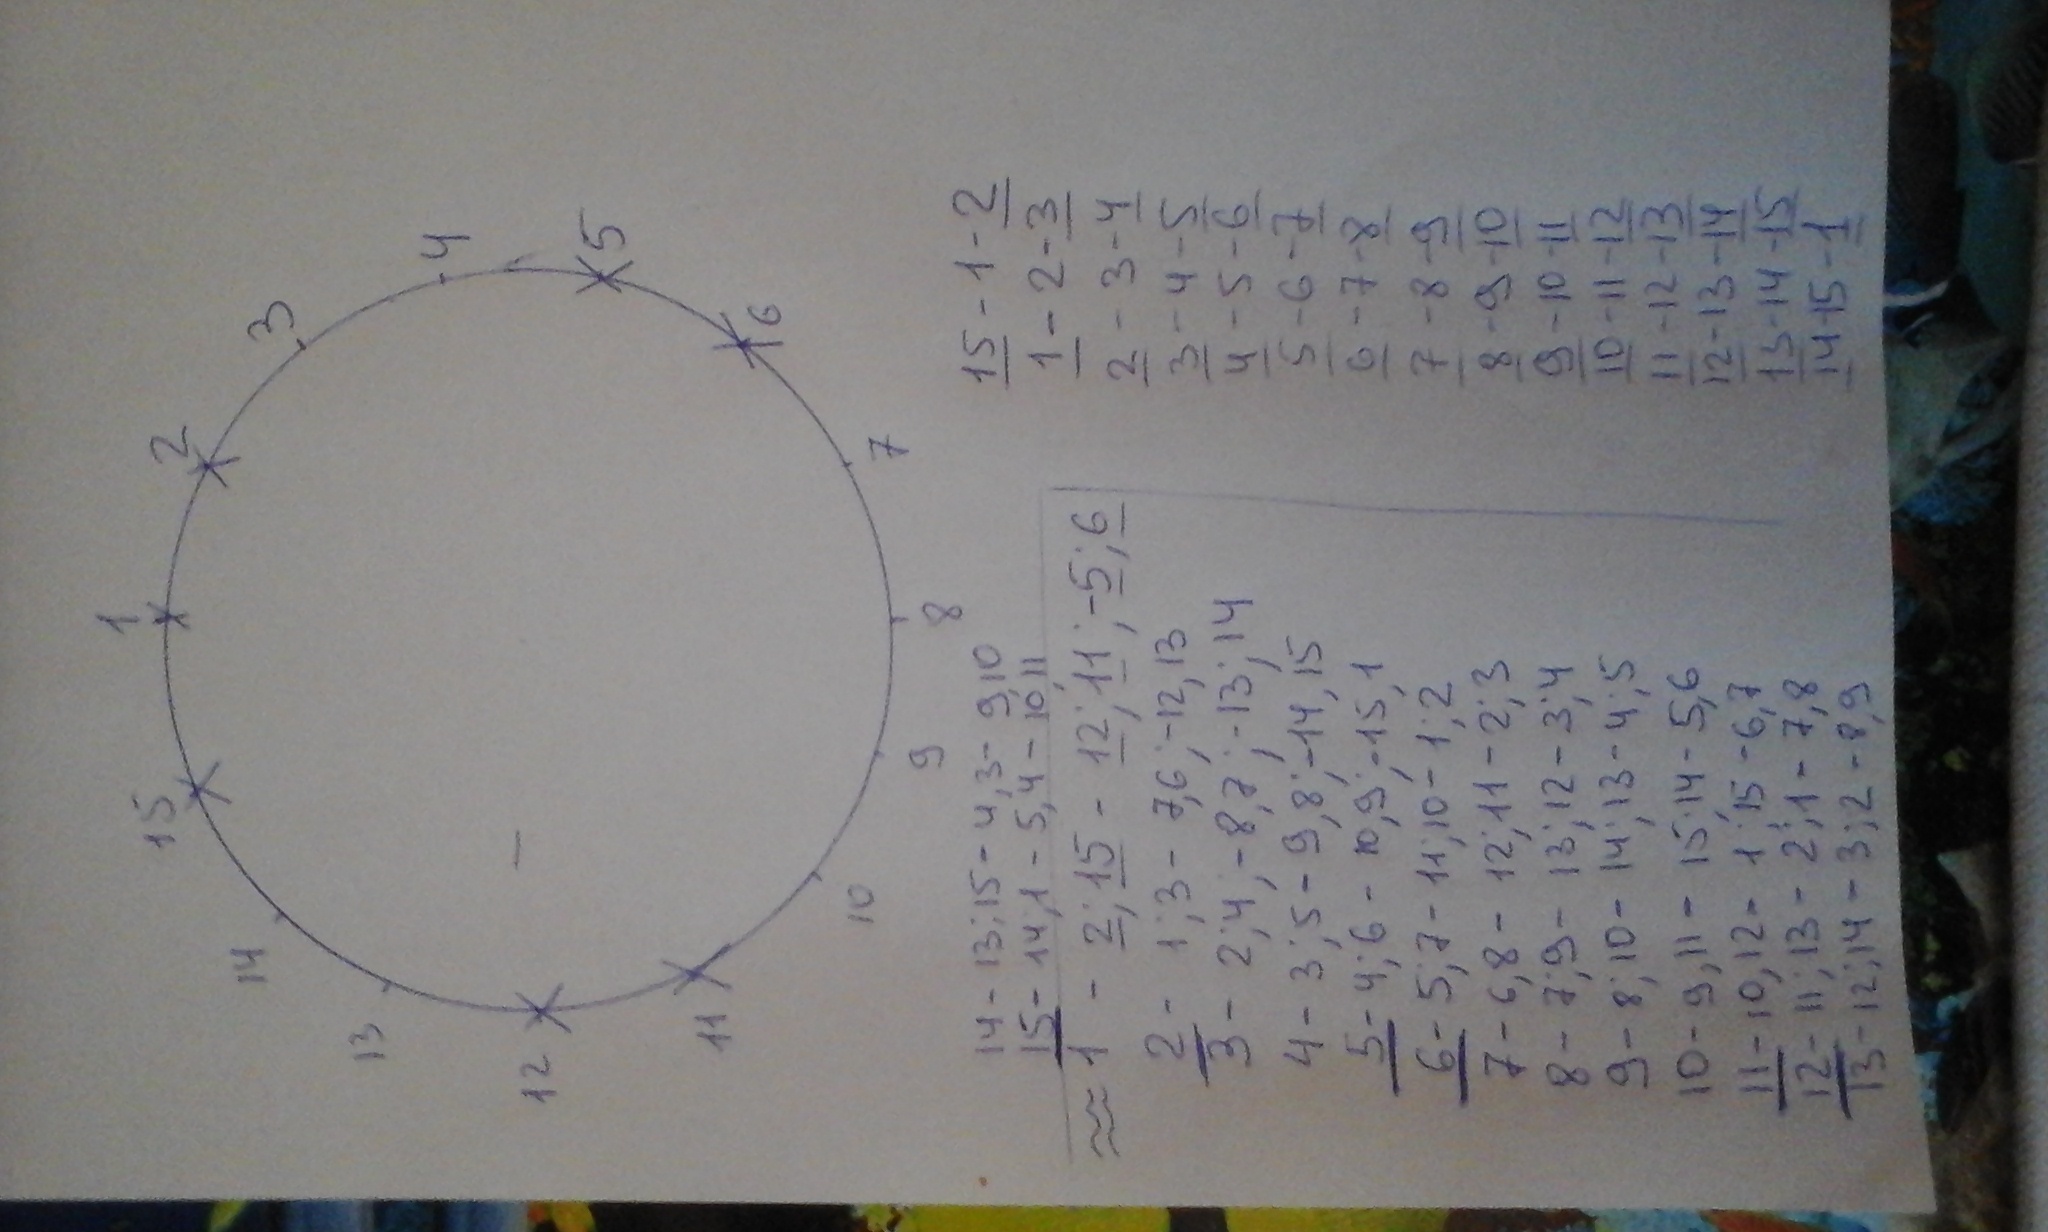 1
2
3
4
5
6
7
8
9
10
11
12
13
14
15
14 - 13; 15 - 4,3 - 9,10
15 - 14,1 - 5,4 - 10,11
1 - 2; 15 - 12; 11; - 5; 6
2 - 1; 3 - 7,6; - 12, 13
3 - 2; 4, - 8,7; - 13; 14
4 - 3; 5 - 9, 8; - 14, 15
5 - 4; 6 - 10,9; - 15, 1
6 - 5; 7 - 11; 10 - 1; 2
7 - 6, 8 - 12; 11 - 2; 3
8 - 7; 9 - 13; 12 - 3; 4
9 - 8; 10 - 14; 13 - 4; 5
10 - 9, 11 - 15; 14 - 5,6
11 - 10, 12 - 1; 15 - 6,7
12 - 11; 13 - 2; 1 - 7,8
13 - 12; 14 - 3; 2 - 8,9
15 - 1 - 2
1 - 2 - 3
2 - 3 - 4
3 - 4 - 5
4 - 5 - 6
5 - 6 - 7
6 - 7 - 8
7 - 8 - 9
8 - 9 - 10
9 - 10 - 11
10 - 11 - 12
11 - 12 - 13
12 - 13 - 14
13 - 14 - 15
14 - 15 - 1